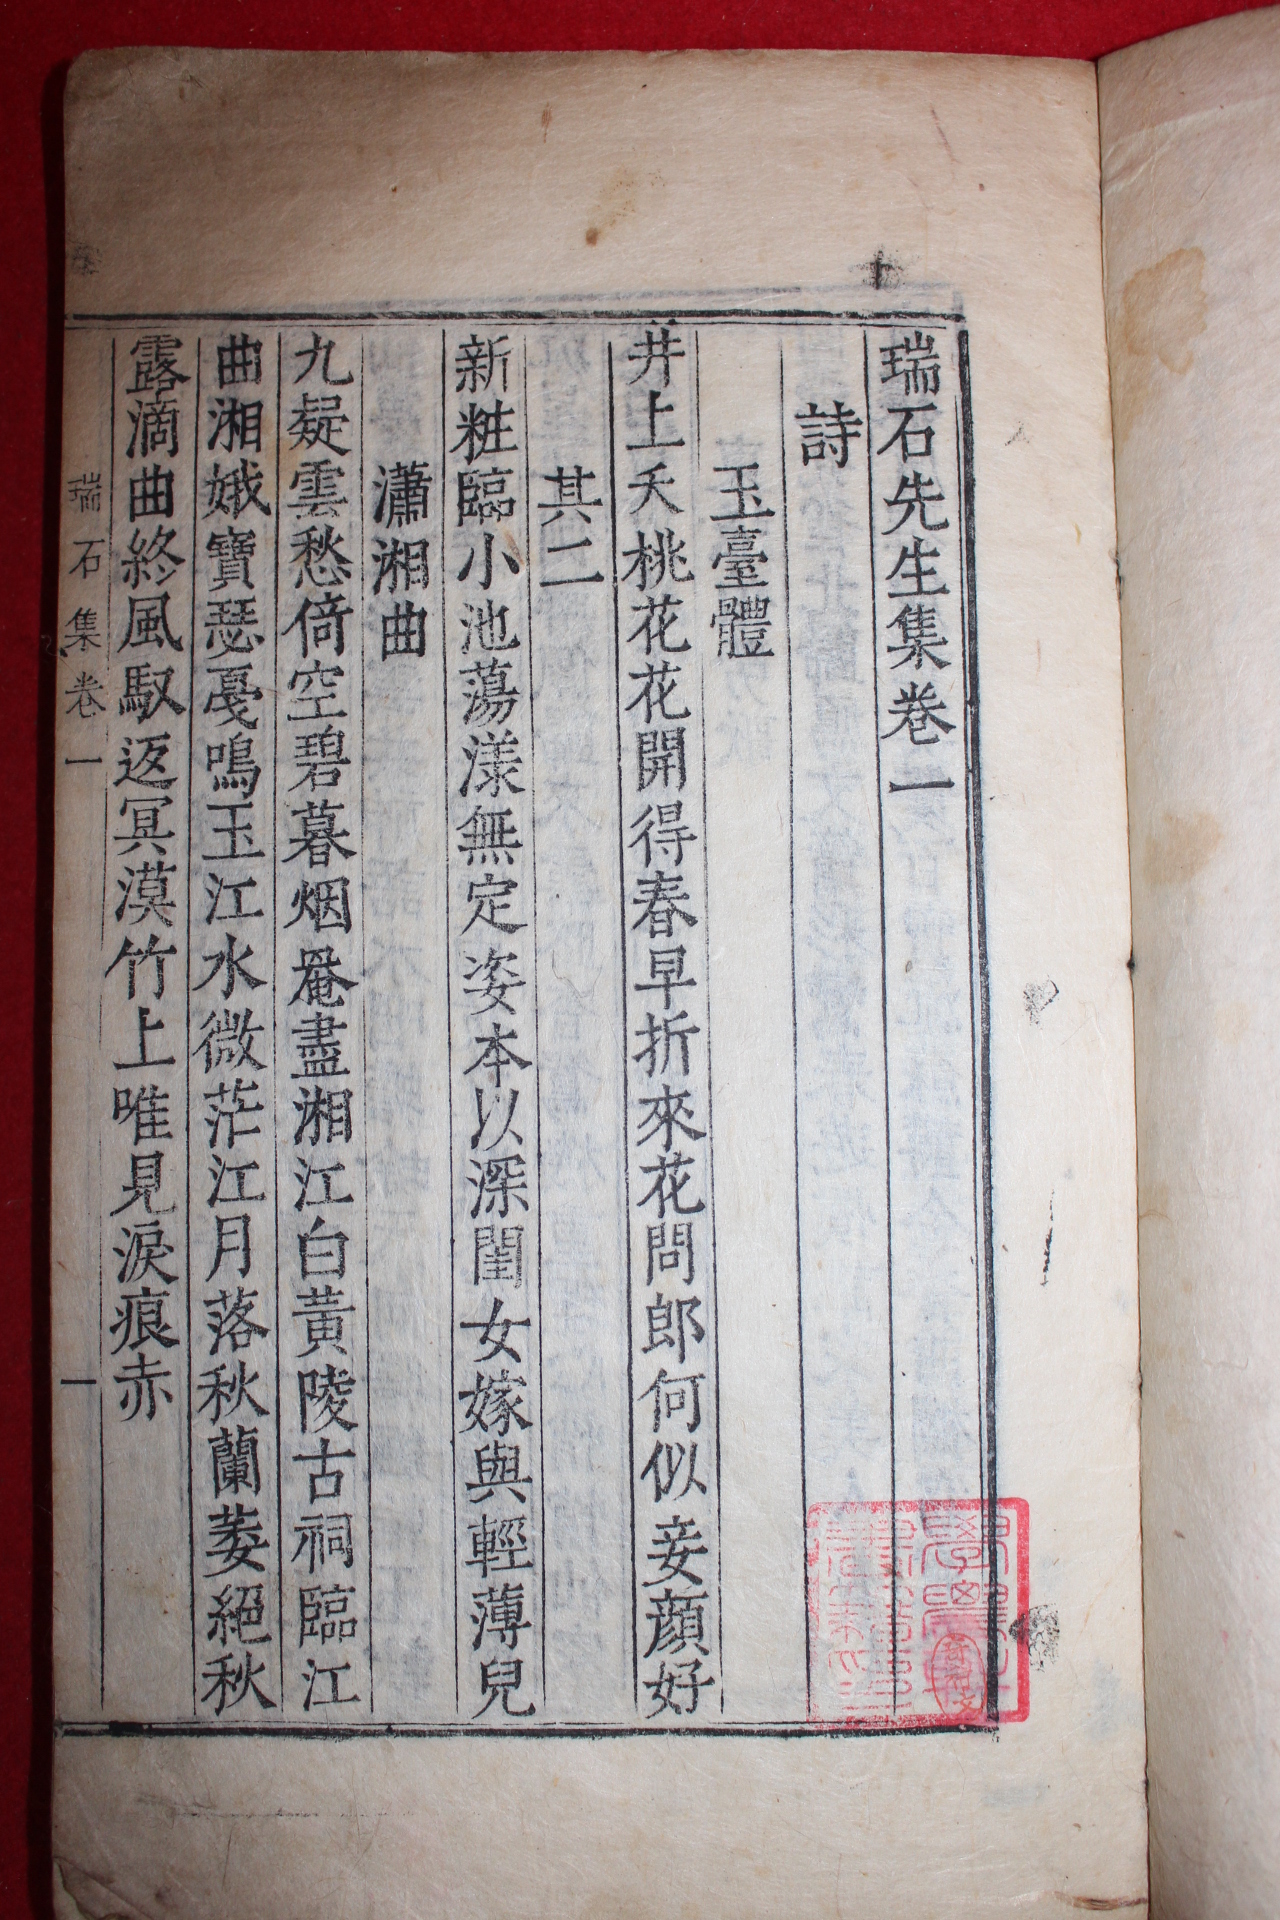 瑞石先生集卷一
詩
玉臺體
井上夭桃花花開得春早折來花問郎何似妾顔好
其二
新粧臨小池蕩漾無定姿本以深閨女嫁與輕薄兒
瀟湘曲
九疑雲愁倚空碧暮烟罨盡湘江白黃陵古祠臨江
曲湘娥寶瑟戞鳴玉江水微茫江月落秋蘭萎絕秋
露滴曲終風馭返冥漠竹上唯見淚痕赤
瑞石集卷一
一